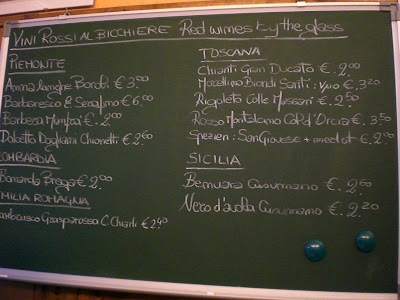 VINI ROSSI AL BICCHIERE Red wines by the glass
PIEMONTE
Barbaresco € 6.00
Barbera € 2.00
Dolcetto Dogliani Chionetti € 2.60
LOMBARDIA
Bonarda € 2.00
EMILIA ROMAGNA
Grasparossa C. Chiarli € 2.40
TOSCANA
Chianti Gran Ducato € 2.00
Morellino Biondi Santi: € 3.20
Rigoleto Colle Massari € 2.50
Rosso Montalcino Col d'Orcia € 3.50
Spezieri: SanGiovese + merlot € 2.00
SICILIA
Benuara Cusumano € 2.60
Nero d'avola Cusumano € 2.20